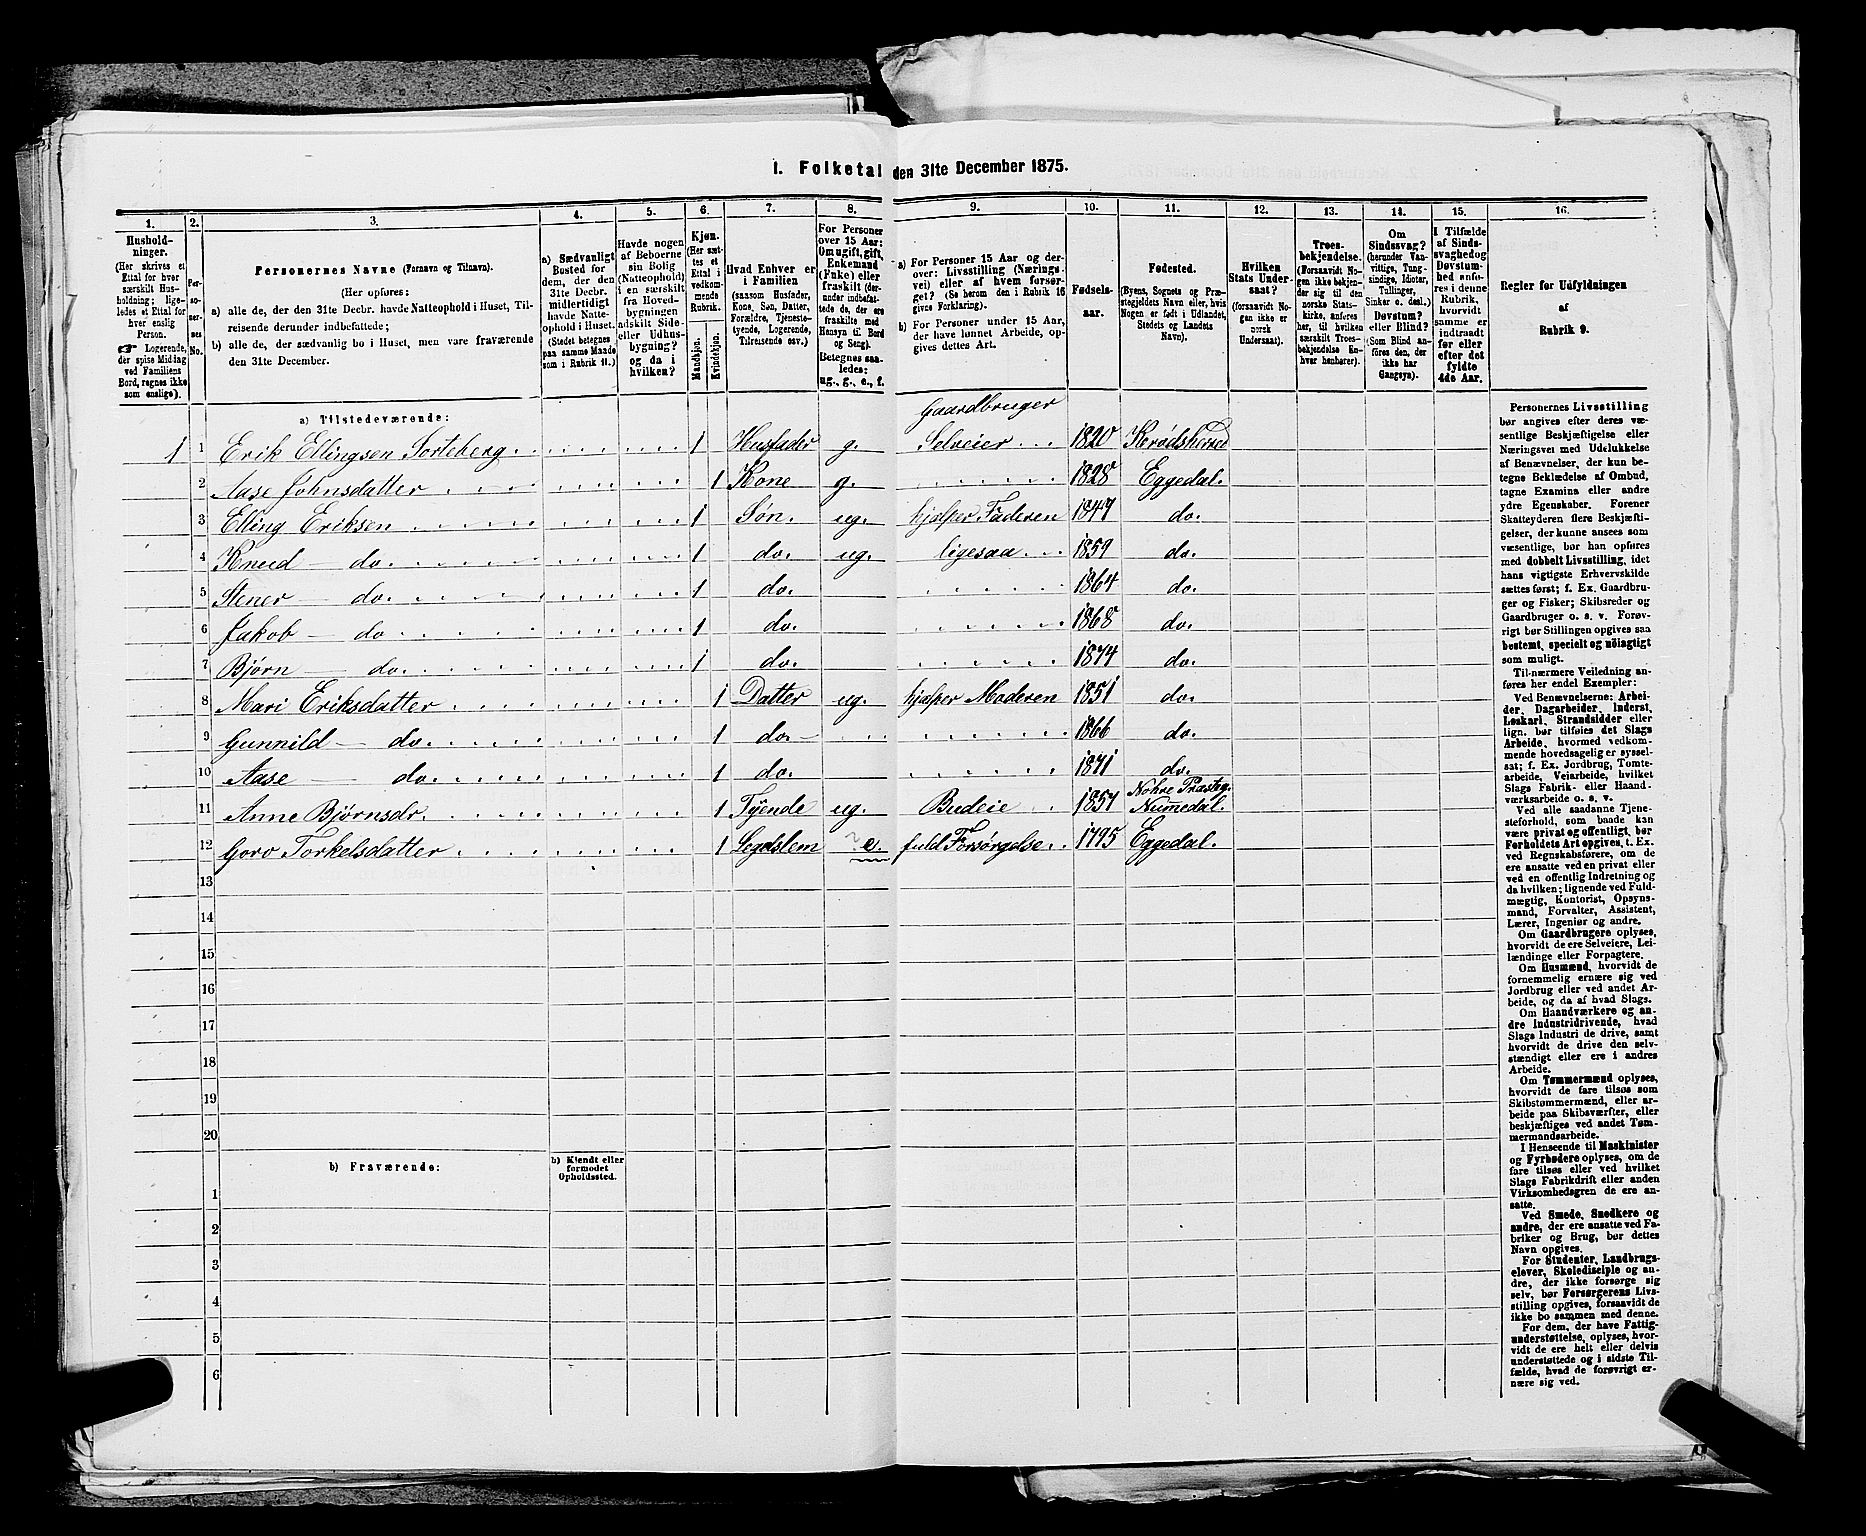 1. Folketal den 31te December 1875.
1.
2.
3.
4.
5.
6.
7.
8.
9.
10.
11.
12.
13.
14.
15.
16.
Hushold-
ninger.
(Her skrives et
Ettal for hver
særskilt Hus-
holdning; lige-
ledes et Ettal for
hver enslig
Person.
☞ Logerende,
der spise Middag
ved Familiens
Bord, regnes ikke
som enslige).
Per-
so-
ner-
nes
No.
Personernes Navne (Fornavn og Tilnavn).
(Her opføres:
a) alle de, der den 31te Decbr. havde Natteophold i Huset, Til-
reisende derunder indbefattede;
b) alle de, der sædvanlig bo i Huset, men vare fraværende
den 31te December.
a) Sædvanligt
Bosted for
dem, der den
31te Decbr.
midlertidigt
havde Natte-
ophold i Huset.
(Stedet betegnes
paa samme Maade
som i Rubrik 11.)
Havde nogen
af Beboerne
sin Bolig
(Natteophold)
i en særskilt
fra Hoved-
bygningen
adskilt Side-
eller Udhus-
bygning?
og da i
hvilken?
Kjøn.
(Her sæt-
tes et
Ettal i
vedkom-
mende
Rubrik.
Mandkjøn.
Kvindekjøn.
Hvad Enhver er
i Familien
(saasom Husfader,
Kone, Søn, Datter,
Forældre, Tjeneste-
tyende, Logerende,
Tilreisende osv.)
For Personer
over 15 Aar:
Om ugift, gift,
Enkemand
(Enke) eller
fraskilt (der-
under indbefat-
tede de, der ere
fraskilte med
Hensyn til Bord
og Seng).
Betegnes saa-
ledes:
ug., g., e., f.
a) For Personer 15 Aar og der-
over: Livsstilling (Nærings-
vei) eller af hvem forsør-
get? (Se herom den i Rubrik 16
givne Forklaring).
b) For Personer under 15 Aar,
der have lønnet Arbeide, op-
gives dettes Art.
Fødsels-
aar.
Fødested.
(Byens, Sognets og Præ-
stegjeldets Navn eller, hvis
Nogen er født i Udlandet,
Stedets og Landets
Navn).
Hvilken
Stats Under-
saat?
(forsaavidt No-
gen ikke er
norsk
Undersaat).
Troes-
bekjendelse.
(Forsaavidt No-
gen ikke bekjen-
der sig til den
norske Stats-
kirke, anføres
her, til hvilken
særskilt Troes-
bekjendelse En-
hver henhører).
Om
Sindssvag?
(herunder Van-
vittige, Tung-
sindige, Idioter,
Tullinger,
Sinker o. desl.)
Døvstum?
eller Blind?
(Som Blind an-
føres den, der
ikke har
Gangsyn).
I Tilfælde
af Sinds-
svaghed og
Døvstum-
hed anfø-
res i denne
Rubrik,
hvorvidt
samme er
indtraadt
før eller
efter det
fyldte
4de Aar.
Regler for Udfyldningen
af
Rubrik 9.
a) Tilstedeværende:
Gaardbruger
1 1 Erik Ellingsen Sorteberg 1 Husfader g. Selveier 1820 Kerødsherred
2 Aase Johnsdatter 1 Kone g. 1828 Eggedal.
3 Elling Eriksen 1 Søn. ug. hjælper Faderen 1847 do.
4 Knud — do. 1 do. ug. ligesaa 1859 do.
5 Stener — do. 1 do. 1864 do.
6 Jakob — do 1 do. 1868 do.
7 Bjørn — do. 1 do. 1874 do.
8 Mari Eriksdatter 1 Datter ug. hjælper Moderen 1851 do.
9 Gunnild — do. 1 do. 1866 do.
10 Aase — do. 1 do. 1871 do.
Nohre Præsteg.
11 Anne Bjørnsdr. 1 Tyende ug. Budeie 1857 Numedal.
12 Goro Torkelsdatter 1 Legdslem e. fuld Forsørgelse. 1795 Eggedal.
13
14
15
16
17
18
19
20
b) Fraværende:
b) Kjendt eller
formodet
Opholdssted.
1
2
3
4
5
6
Personernes Livsstilling
bør angives efter deres væ-
sentlige Beskjæftigelse eller
Næringsvei med Udelukkelse
af Benævnelser, der kun be-
tegne Beklædelse af Ombud,
tagne Examina eller andre
ydre Egenskaber. Forener
Skatteyderen flere Beskjæfti-
gelser, der kunne ansees som
væsentlige, bør han opføres
med dobbelt Livsstilling, idet
hans vigtigste Erhvervskilde
sættes først; f. Ex. Gaardbru-
ger og Fisker; Skibsreder og
Gaardbruger o. s. v. Forøv-
rigt bør Stillingen opgives saa
bestemt, specielt og nøiagtigt
som muligt.
Til nærmere Veiledning an-
føres her endel Exempler:
Ved Benævnelserne: Arbei-
der, Dagarbeider, Inderst,
Løskarl, Strandsidder eller
lign. bør tilføies det Slags
Arbeide, hvormed vedkom-
mende hovedsagelig er syssel-
sat; f. Ex. Jordbrug, Tomte-
arbeide, Veiarbeide, hvilket
Slags Fabrik- eller Haand-
værksarbeide o. s. v.
Ved alle saadanne Tjene-
steforhold, som baade kan
være privat og offentligt, bør
Forholdets Art opgives, t. Ex.
ved Regnskabsførere, om de
ere ansatte ved en privat eller
ved en offentlig Indretning og
da hvilken; lignende ved Fuld-
mægtig, Kontorist, Opsyns-
mand, Forvalter, Assistent,
Lærer, Ingeniør og andre.
Om Gaardbrugere oplyses,
hvorvidt de ere Selveiere, Lei-
lændinge eller Forpagtere.
Om Husmænd, hvorvidt de
fornemmelig ernære sig ved
Jordbrug eller ved andet Ar-
beide, og da af hvad Slags.
Om Haandværkere og an-
dre Industridrivende, hvad
Slags Industri de drive, samt
hvorvidt de drive den selv-
stændigt eller ere i andres
Arbeide.
Om Tømmermænd oplyses,
hvorvidt de fare tilsøs som
Skibstømmermænd, eller ar-
beide paa Skibsværfter, eller
beskjæftiges ved andet Tøm-
mermandsarbeide.
I Henseende til Maskinister
og Fyrbødere oplyses, om de
fare tilsøs eller ved hvilket
Slags Fabrikdrift eller anden
Virksomhedsgren de ere an-
satte.
Ved Smede, Snedkere og
andre, der ere ansatte ved Fa-
briker og Brug, bør dettes
Navn opgives.
For Studenter, Landbrugs-
elever, Skoledisciple og an-
dre, der ikke forsørge sig
selv, bør Forsørgerens Livs-
stilling opgives, forsaavidt de
ikke bo sammen med denne.
For dem, der have Fattig-
understøttelse, oplyses, hvor-
vidt de ere helt eller delvis
understøttede og i sidste Til-
fælde, hvad de forøvrigt er-
nære sig ved.